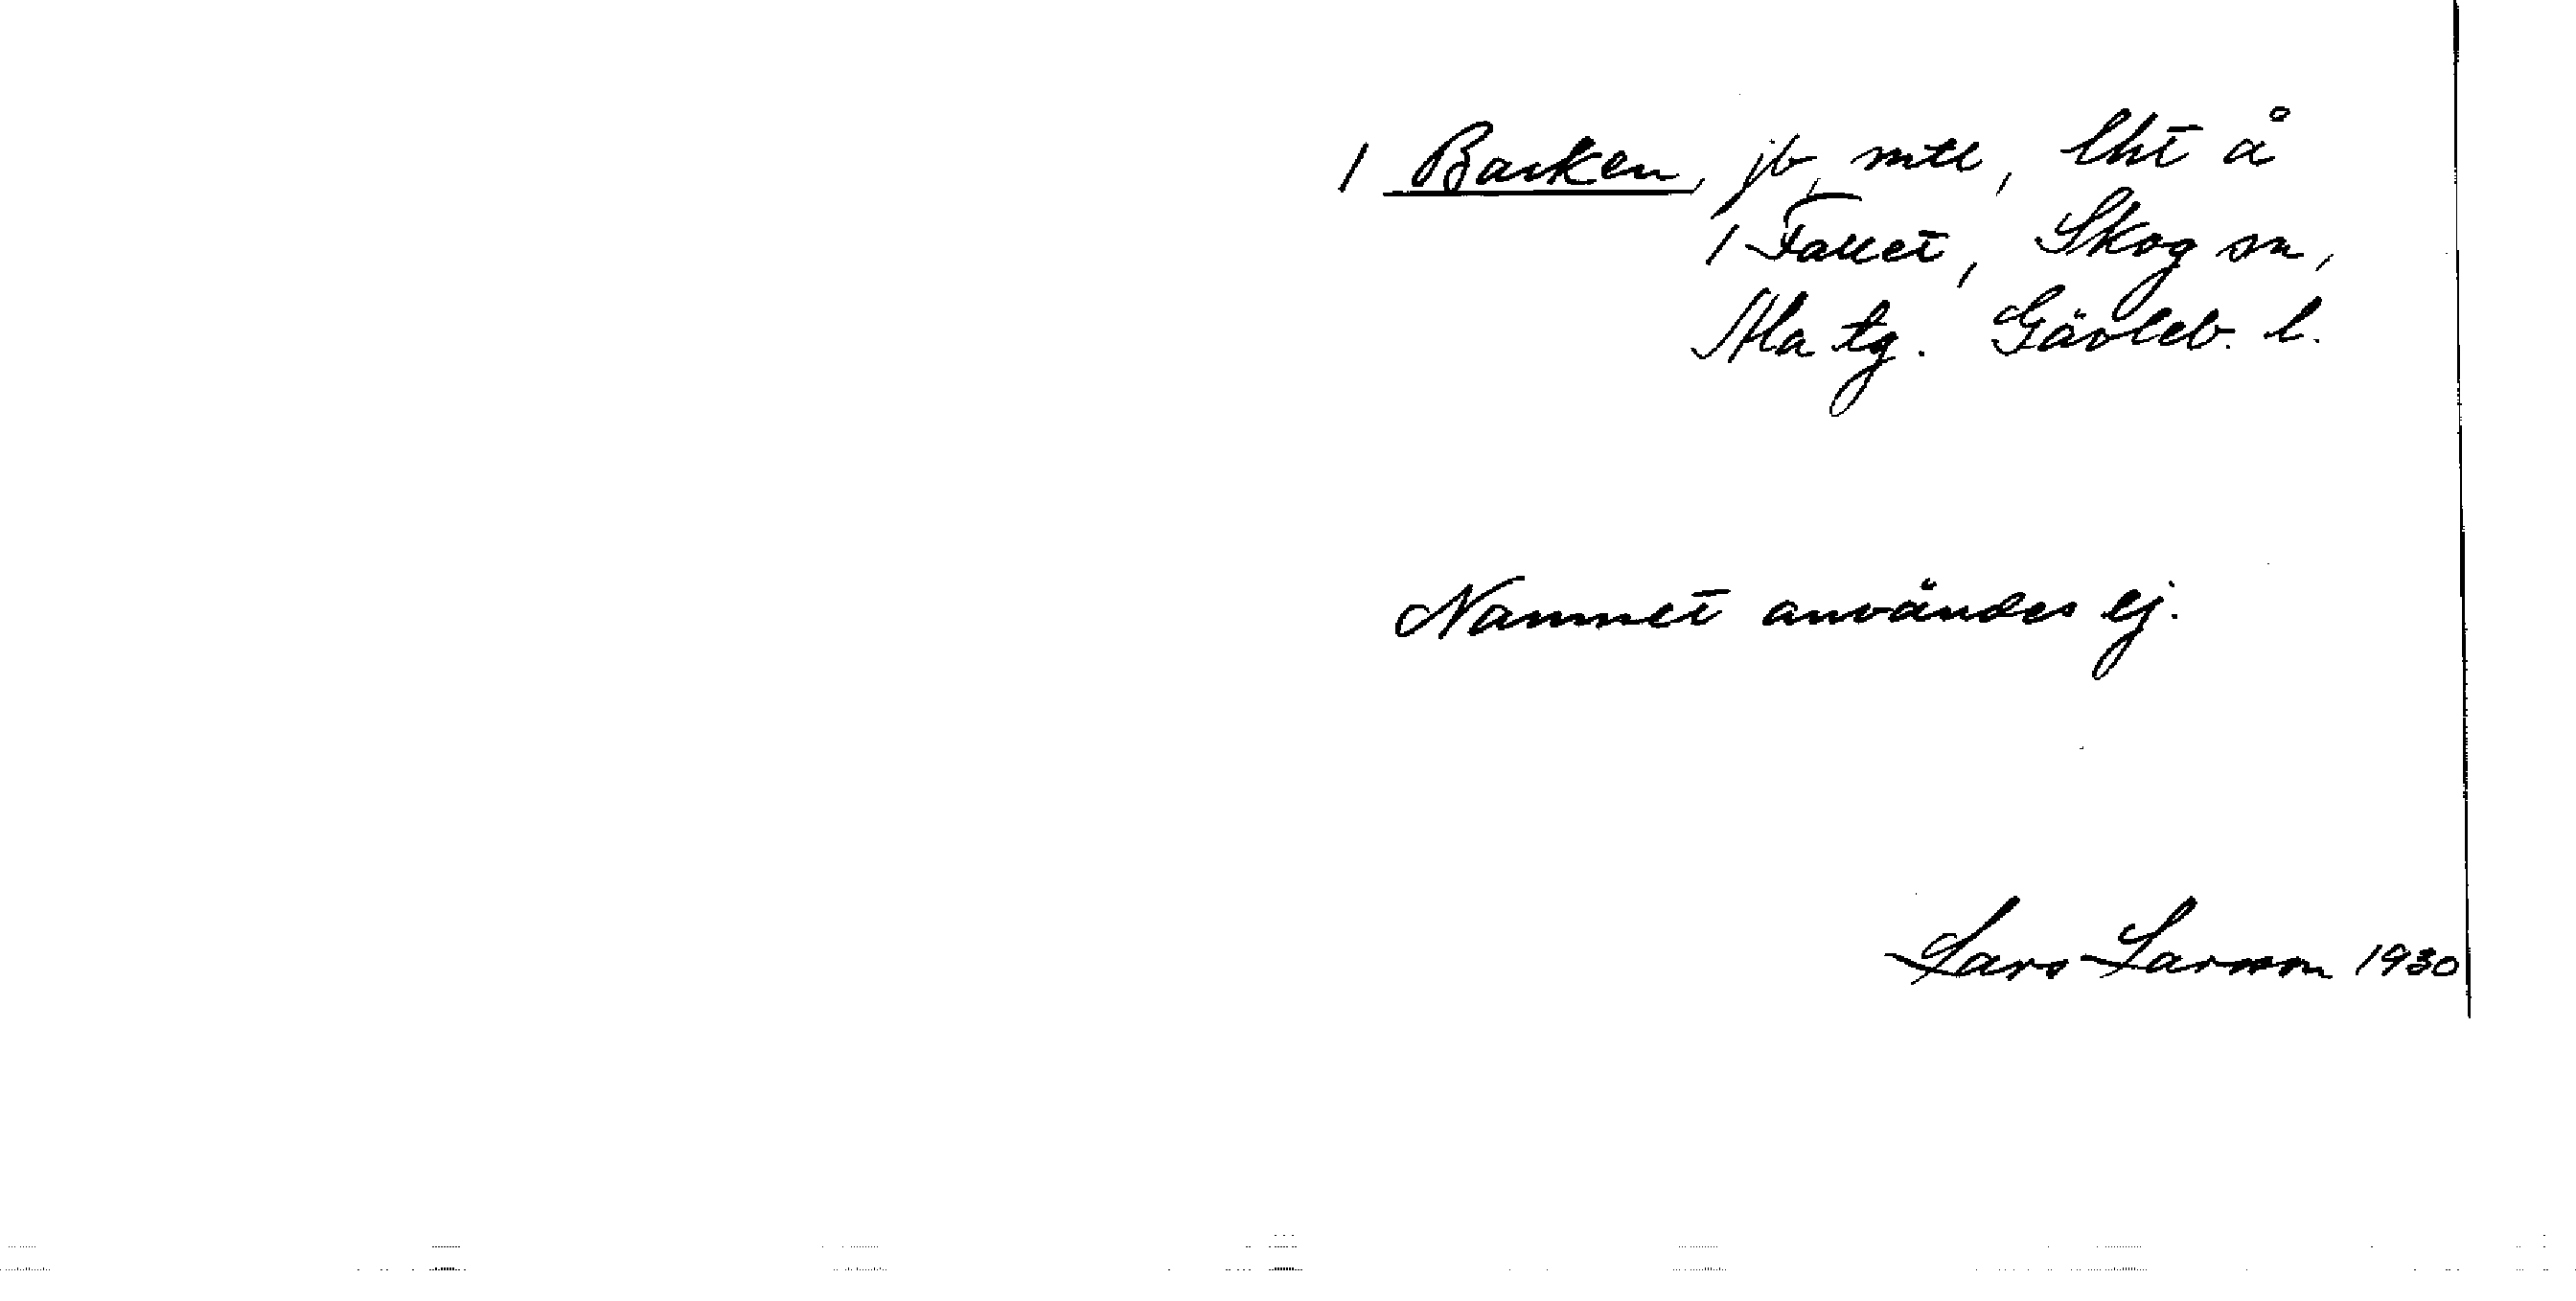 1 Backen, jb, mtl, lht å
1 Fallet, Skog sn,
Ala tg. Gävleb. l.
Namnet användes ej.
Lars Larsson 1930